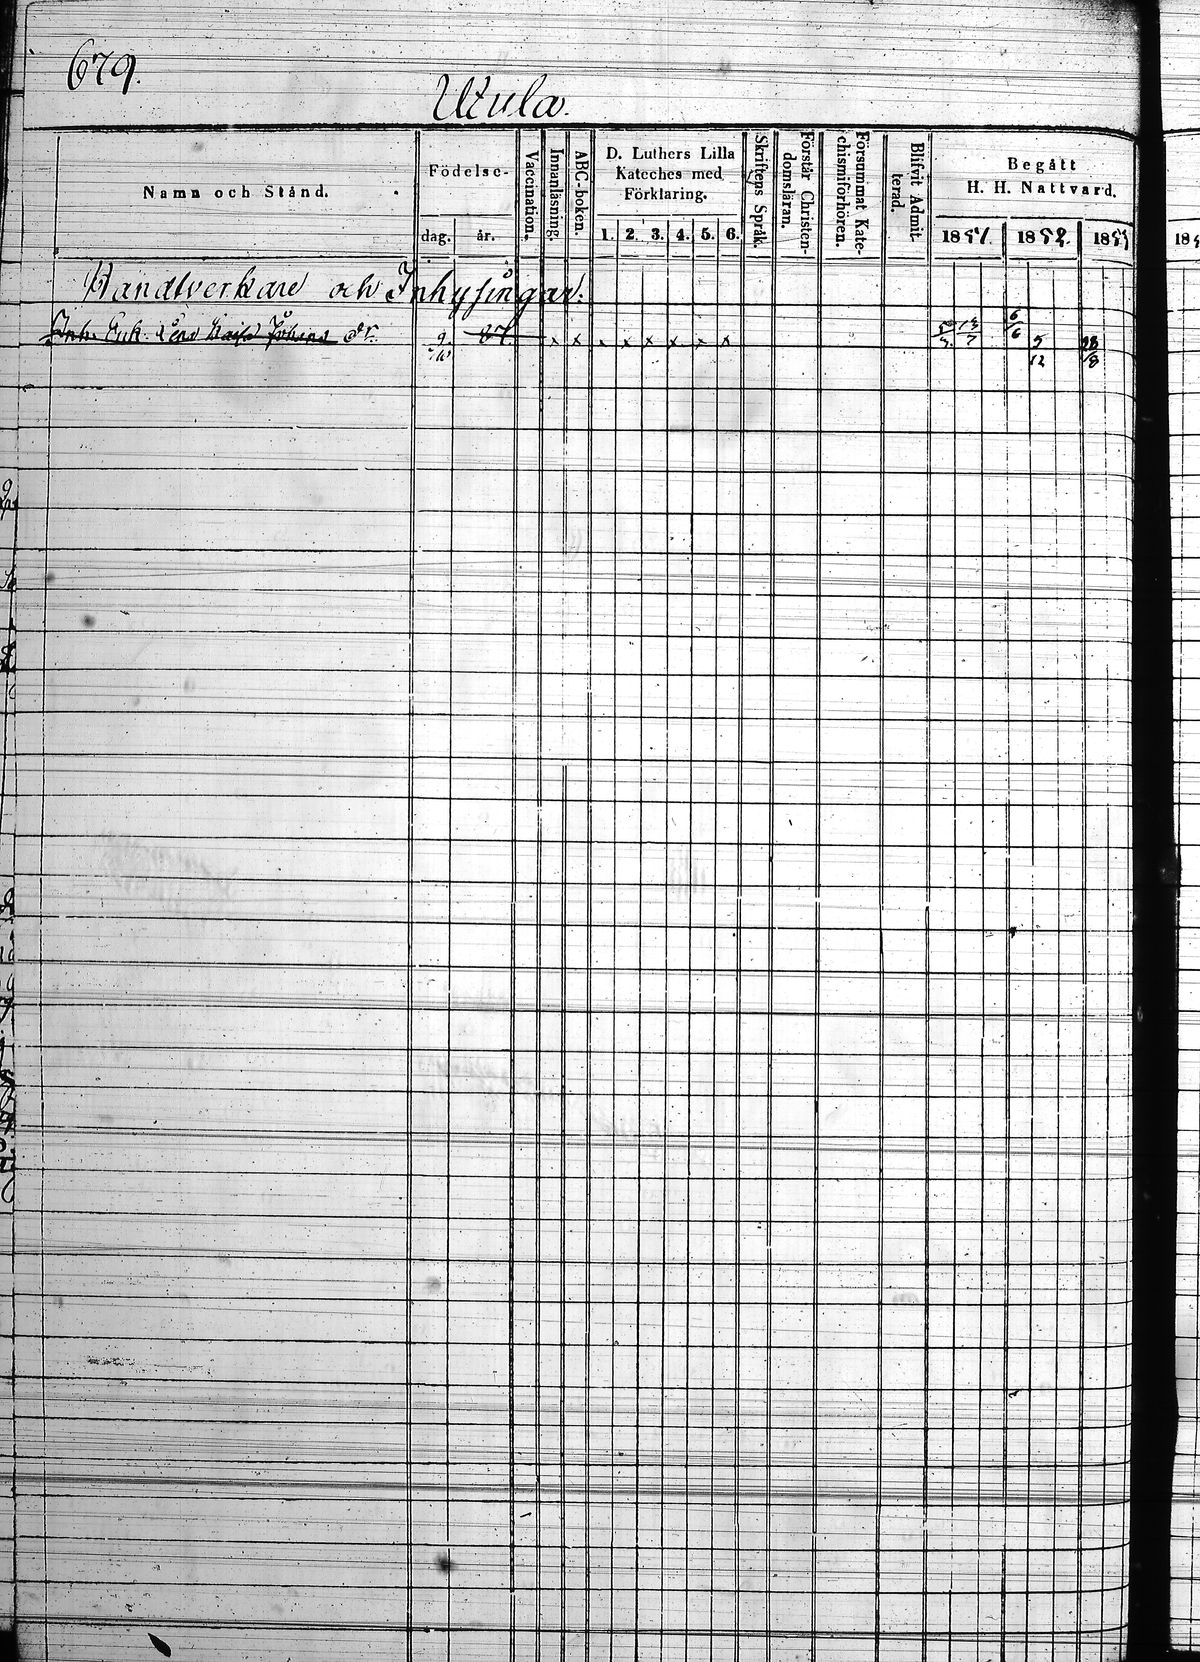 679.
Utula.
Namn och Stånd.
Födelse-
dag.
år.
Vaccination.
Innanläsning.
ABC-boken.
D. Luthers Lilla
Kateches med
Förklaring.
1. 2. 3. 4. 5. 6.
Skriftens Språk.
Förstår Christen-
domsläran.
Försummat Kate-
chismiförhören.
Blifvit Admit-
terad.
Begått
H. H. Nattvard.
1851. 1852. 1853
Handtverkare och Inhysingar.
Inh. Enk. Lena Kaisa Johans dr. 9/10 87 x x x x x x x x 6/6 5/12 28/8